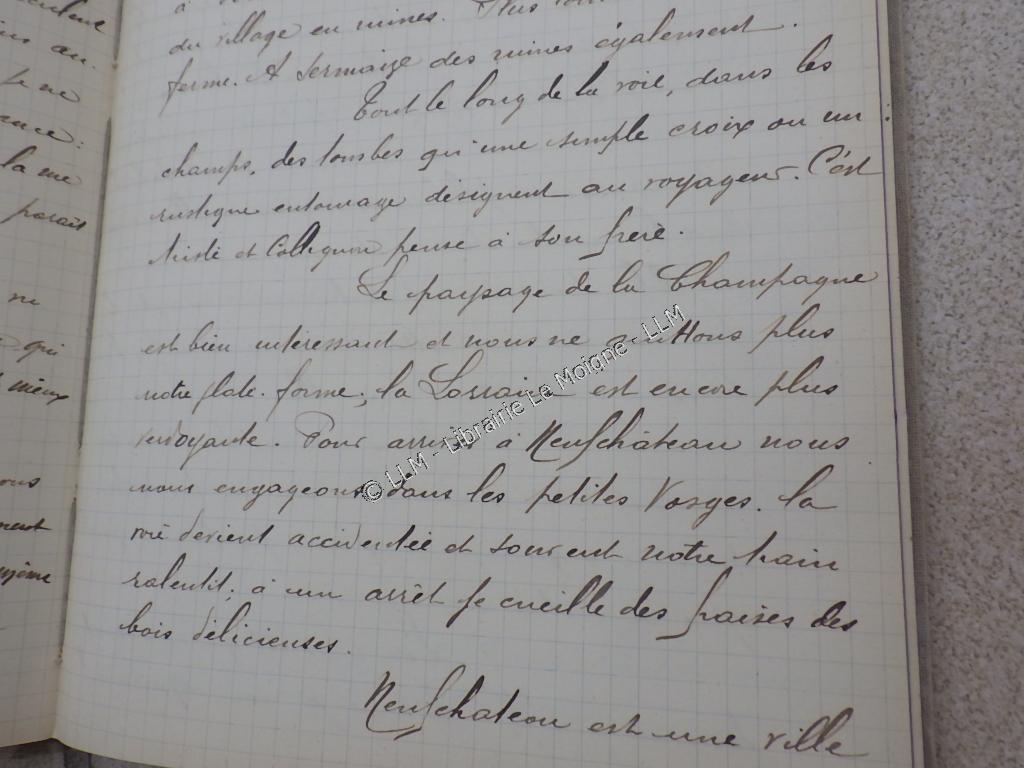 culent
us au.
Je ne
ance:
la me
parait
ne
qui
mieux
ous
ment
du village en ruines. Nous
ferme. A Sermaize des ruines également.
Tout le long de la voie, dans les
champs, des tombes qu'une simple croix ou un
rustique entourage désignent au voyageur. C'est
triste et pense à son frère.
Le paysage de la Champagne
est bien intéressant et nous ne quittons plus
notre plate-forme; la Lorraine est encore plus
. Pour arriver à Neufchâteau nous
nous engageons dans les petites Vosges. la
voie devient accidentée et souvent notre train
ralentit; à un arrêt je cueille des fraises des
bois délicieuses.
Neufchateau est une ville
© LLM - Librairie Le Moigne - LLM